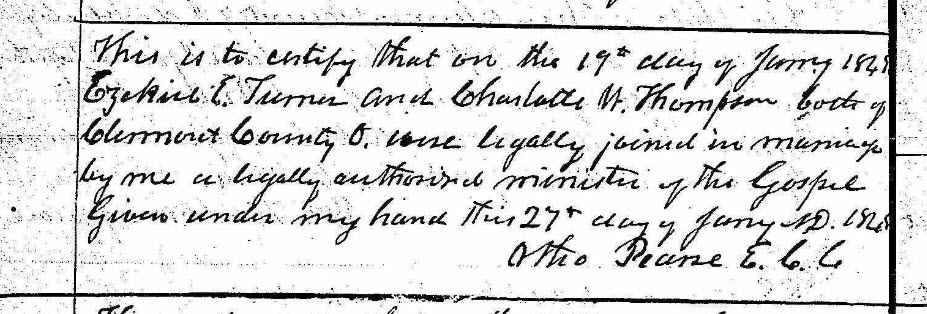 This is to certify that on the 19th day of Janry
Ezekiel E. Turner and Charlotte W. Thompson both of
Clermont County O. were legally joined in marriage
by me a legally authorized minister of the Gospel
Given under my hand this 27th day of Janry AD.
Otho Pearse E. C. C